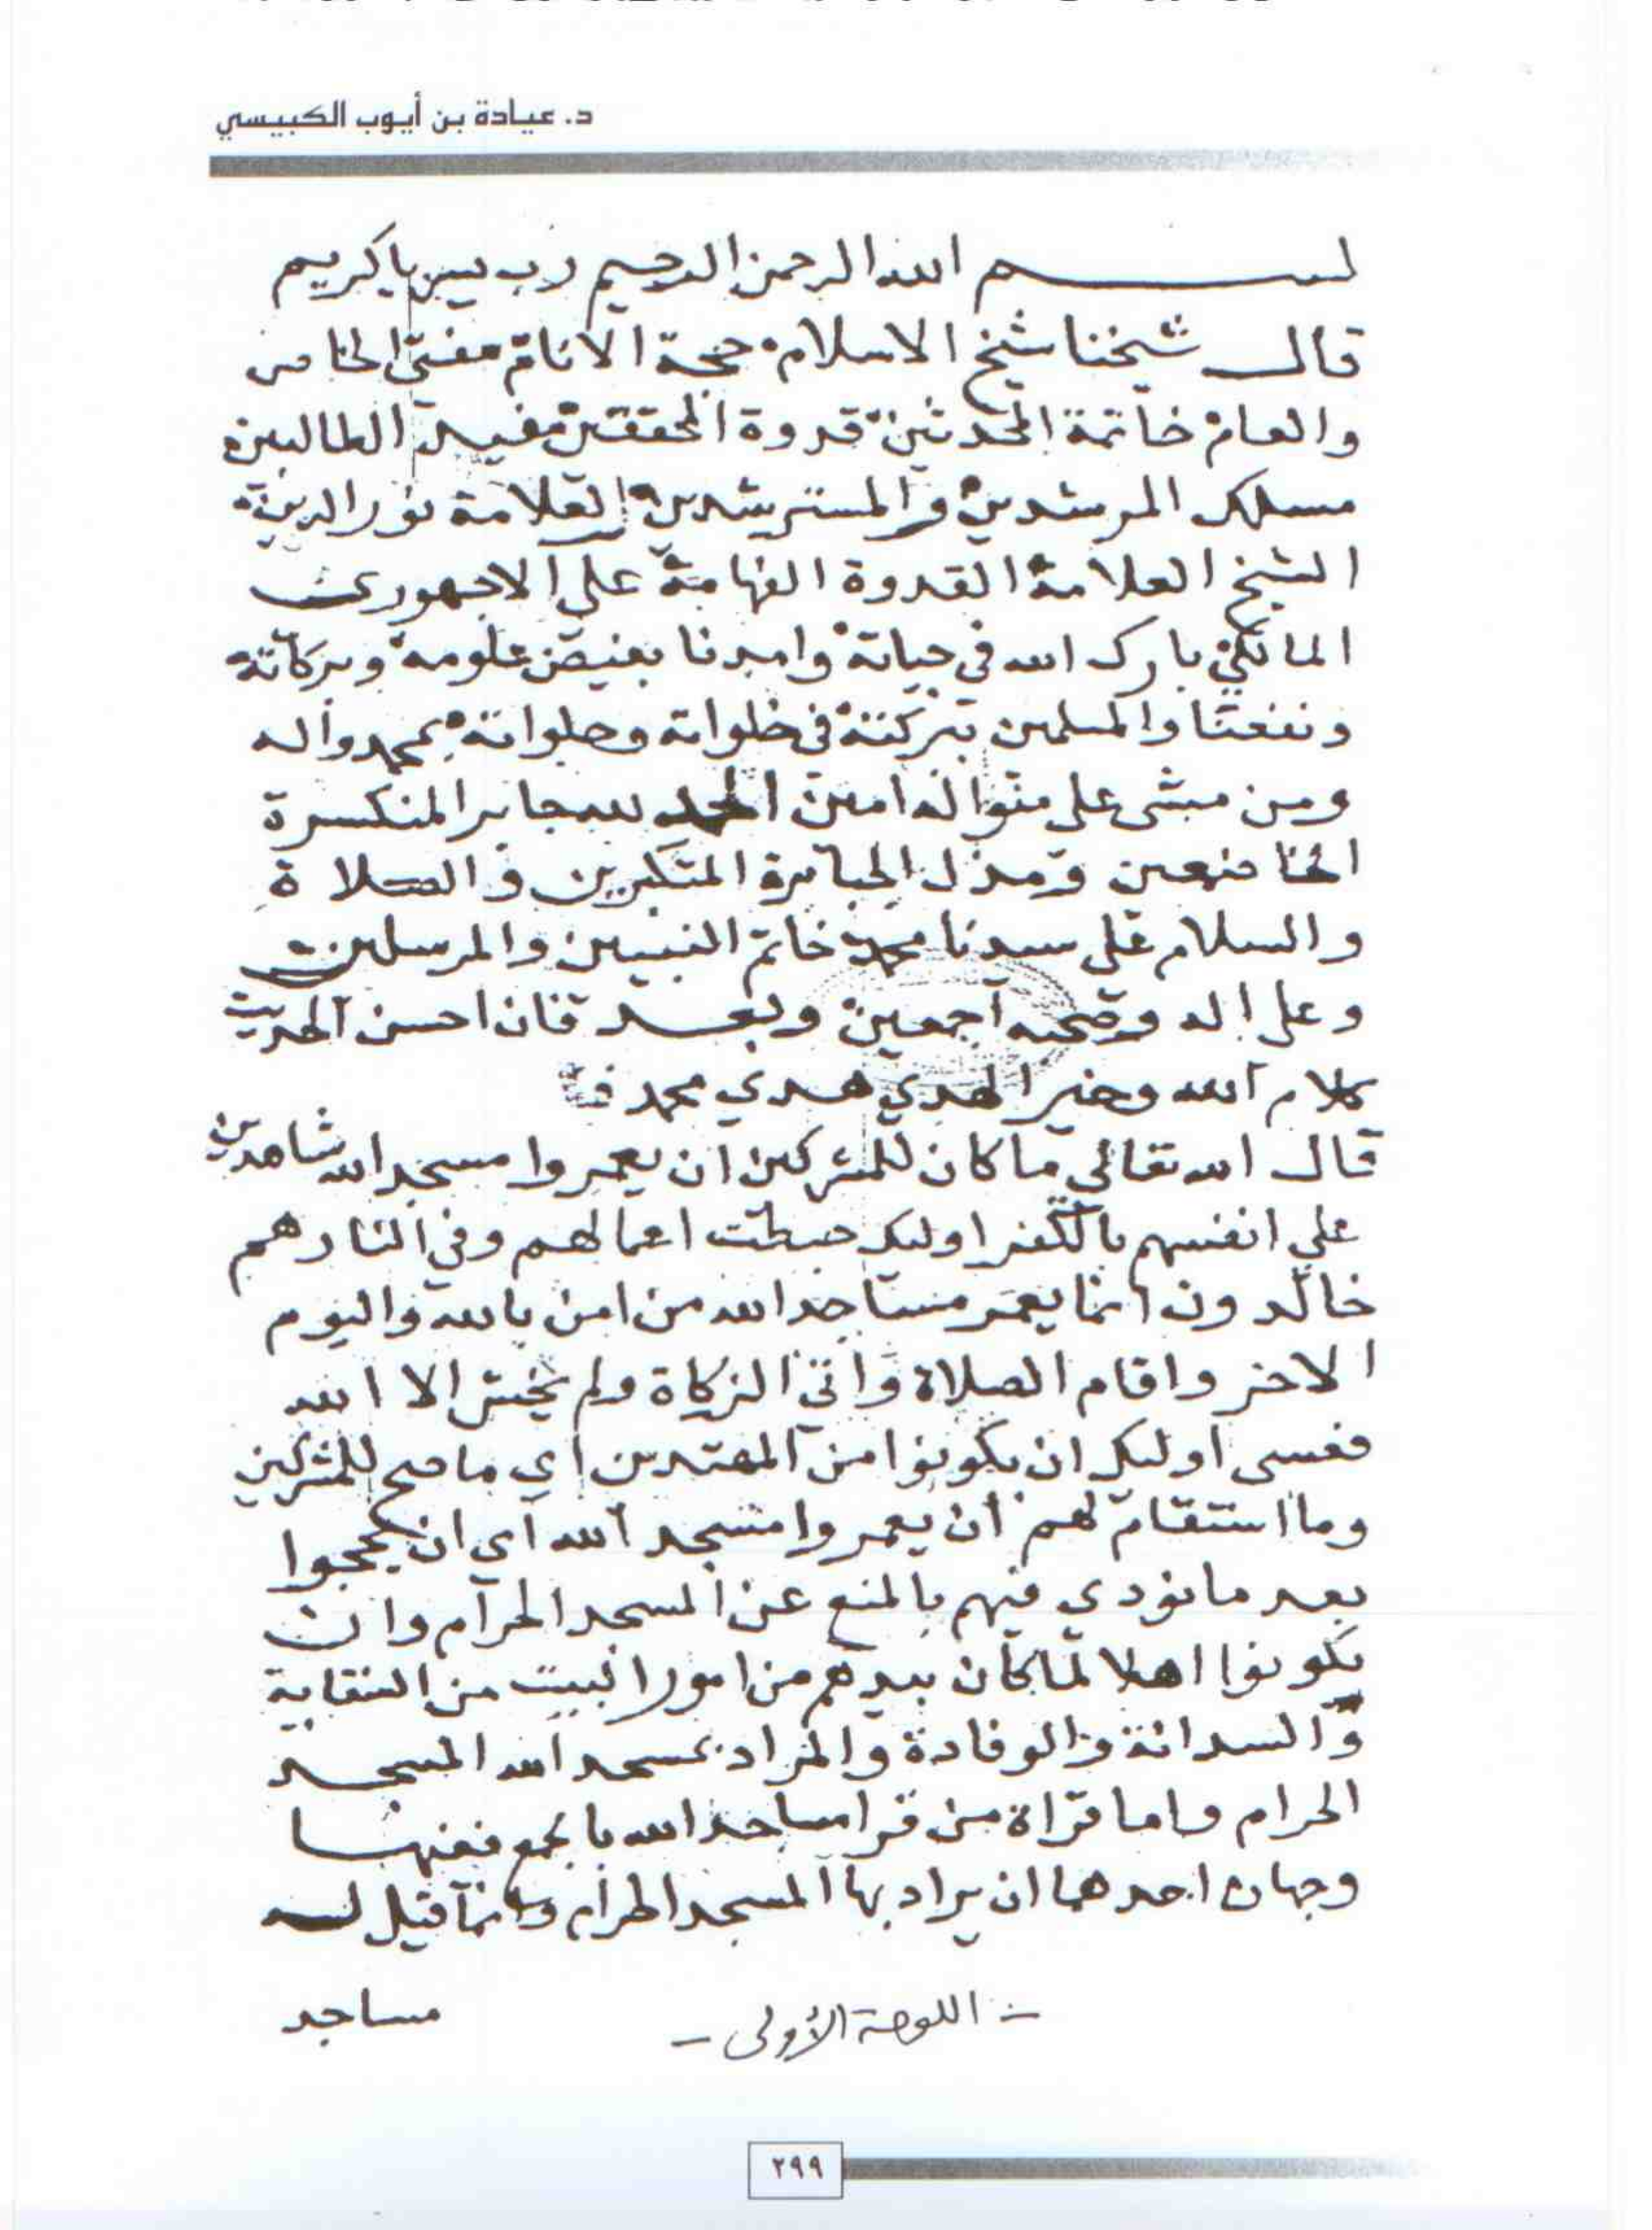 د. عيادة بن أيوب الكبيسي
بسم الله الرحمن الرحيم رب يسر ياكريم
قال شيخنا شيخ الاسلام حجة الانام مفتي الخاص
والعام خاتمة المحدثين قدوة المحققين مفيد الطالبين
مسلك المرشدين والمسترشدين العلامة نور الدين
الشيخ العلامة القدوة الفهامة علي الاجهوري
المالكي بارك الله في حياته وامدنا بفيض علومه وبركاته
ونفعنا والمسلمين ببركته في خلواته وجلواته بمحمد وآله
ومن مشى على منواله امين الحمد لله جابر المنكسرة
الخاضعين ومذل الجبابرة المتكبرين والصلاة
والسلام على سيدنا محمد خاتم النبيين والمرسلين
وعلى اله وصحبه اجمعين وبعد فان احسن الحديث
كلام الله وخير الهدي هدي محمد
قال الله تعالى ما كان للمشركين ان يعمروا مسجد الله شاهدين
علي انفسهم بالكفر اوليك حبطت اعمالهم وفي النار هم
خالدون انما يعمر مساجد الله من امن بالله واليوم
الاخر واقام الصلاة واتي الزكاة ولم يخش الا الله
فعسى اوليك ان يكونوا من المهتدين اي ما صح للمشركين
وما استقام لهم ان يعمروا مسجد الله اي ان يحجوا
بعد ما نودي فيهم بالمنع عن المسجد الحرام وان
يكونوا اهلا لما كان بيدهم من امور البيت من السقاية
والسدانة والوفادة والمراد بمسجد الله المسجد
الحرام واما قراة من قرا مساجد الله بالجمع ففيها
وجهان احدهما ان يراد بها المسجد الحرام وانما قيل له
مساجد
- اللوحة الأولى -
٢٩٩